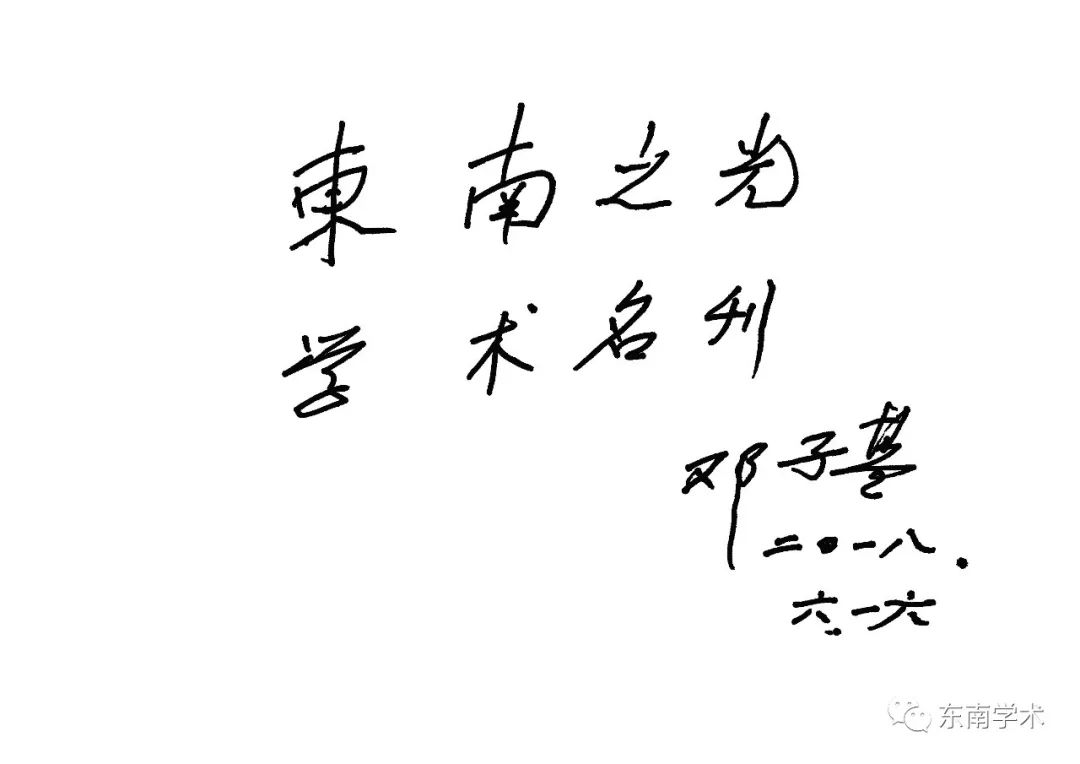 東南之光
学术名刊
邓子基
二〇一八.
六.一六
东南学术